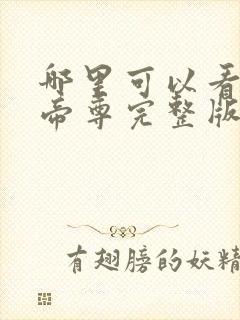 哪里可以看
帝尊完整版
有翅膀的妖精